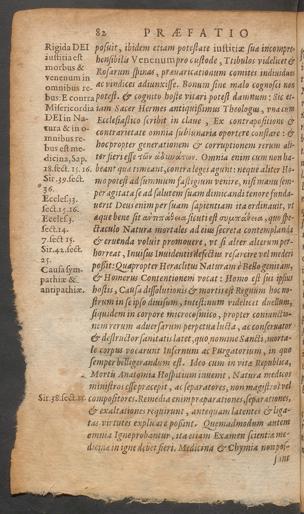 82 PRÆFATIO
Rigida DEI
iustitia est
morbus &
venenum in
omnibus re-
bus: E contra
Misericordia
DEI in Na-
tura & in o-
mnibus re-
bus est me-
dicina, Sap.
18. sect. 15. 16.
Sir. 39. sect.
36.
Eccles. 33.
sect. 15. 16.
Eccles. 3.
sect. 14.
7. sect. 15.
Sir. 42. sect.
25.
Causa sym-
pathiæ &
antipathiæ.
Sir. 38. sect. 15
posuit, ibidem etiam potestate iustitiæ suæ incompre-
hensibilis Venenum pro custode, Tribulos videlicet &
Rosarum spinas, prævaricationum comites individuos
ac vindices adiunxisse. Bonum sine malo cognosci non
potest, & cognito hoste vitari potest damnum: Sic et-
iam Sacer Hermes antiquissimus Theologus, vna cum
Ecclesiastico scribit in clave, Ex contrapositione &
contrarietate omnia sublunaria oportere constare: &
hoc propter generationem & corruptionem rerum ali-
ter fieri esse τῶν ἀδυνάτων. Omnia enim cum non ha-
beant quo timeant, contra leges agunt: neque aliter Ho-
mo potest ad summum fastigium venire, nisi manu sem-
per agitata se ad salutem suam dimicando tenore funda-
verit Deus enim per suam sapientiam ita ordinavit, vt
æque bene sit ἀντιπάθεια sicuti est συμπάθεια, quo spe-
ctaculo Natura mortales ad eius secreta contemplanda
& eruenda voluit promovere, vt si alter alterum per-
horreat, Inuisus Inuidentis defectus resarcire vel mederi
possit: Quapropter Heraclitus Naturam è Bello genitam,
& Homerus Contentionem vocat: Homo est sui ipsius
hostis, Causa dissolutionis & mortis est Regnum hoc no-
strum in se ipso divisum, intestinum videlicet duellum,
siquidem in corpore microcosmico, propter coniunctio-
nem rerum adversarum perpetua lucta, ac conservator
& destructor sanitatis latet, quo nomine Sancti, morta-
le corpus vocarunt Infernum ac Purgatorium, in quo
semper belligerandum est. Ideo cum in vitæ Republica,
Mortis Anatomia Hospitium invenit, Natura medicos
ministros esse præcepit, ac separatores, non magistros vel
compositores. Remedia enim præparationes, separationes,
& exaltationes requirunt, antequam latentes & liga-
tas virtutes explicare possint. Quemadmodum autem
omnia Igne probantur, ita etiam Examen scientiæ me-
dicinæ in igne debet fieri. Medicina & Chymia non pos-
sint